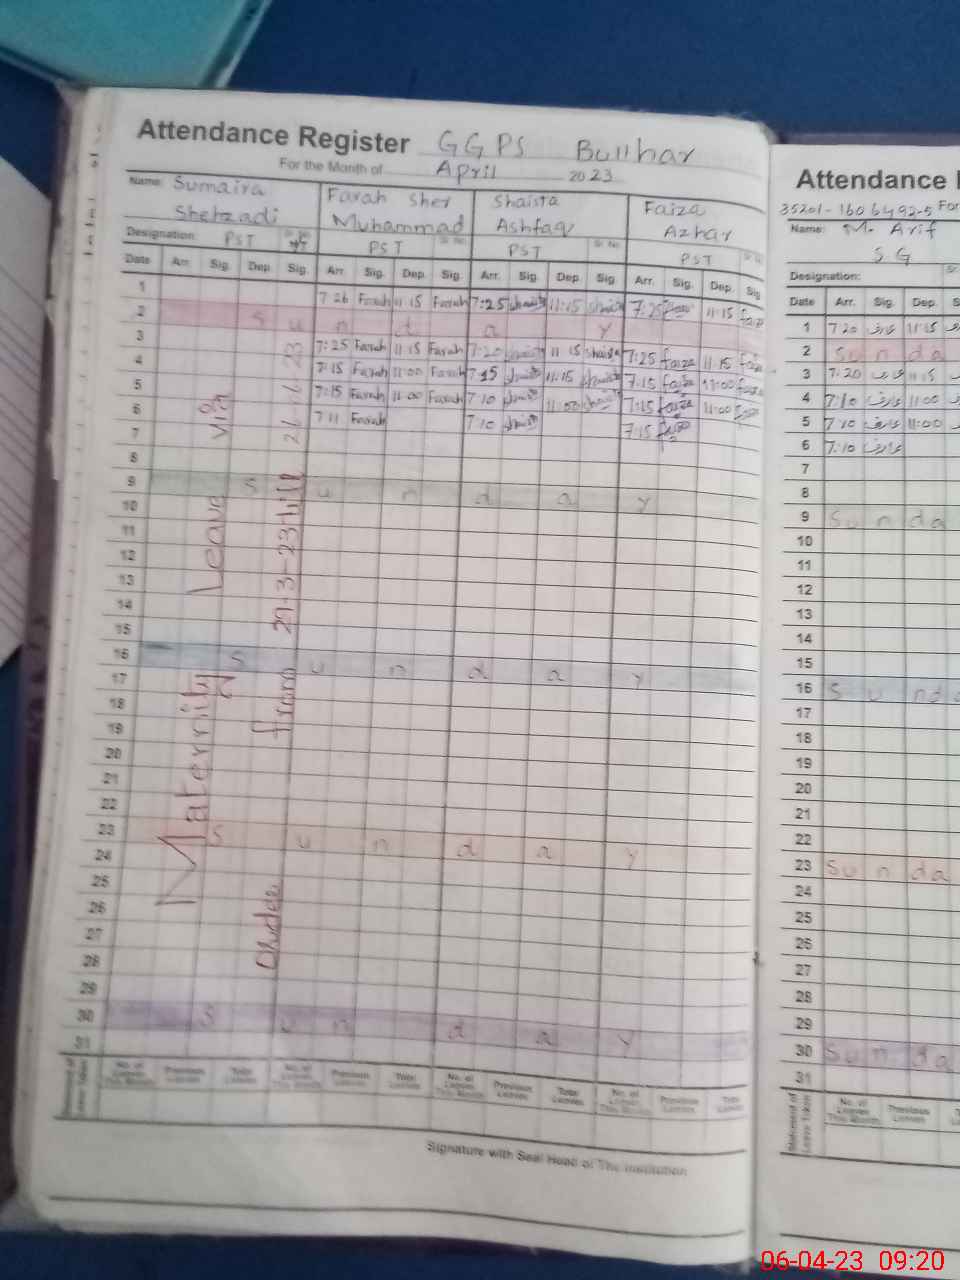 Attendance Register GGPS Bullhar
For the Month of April 2023
Name: Sumaira Shehzadi
Farah Sher Muhammad
Shaista Ashfaq
Faiza Azhar
Designation: PST
PST
PST
PST
Date Arr. Sig. Dep. Sig. Arr. Sig. Dep. Sig. Arr. Sig. Dep. Sig. Arr. Sig. Dep. Sig
1 7:26 Farah 11 15 Farah 7:25 Shaista 11:15 Shaista 7:25 Faiza 11 15 Faiza
2 S u n d a y
3 7:25 Farah 11 15 Farah 7:20 Shaista 11 15 Shaista 7:25 Faiza 11 15 Faiza
4 7:15 Farah 11:00 Farah 7:15 Shaista 11:15 Shaista 7:15 Faiza 11:00 Faiza
5 7:15 Farah 11:00 Farah 7 10 Shaista 11:00 Shaista 7:15 Faiza 11:00 Faiza
6 7 11 Farah 7 10 Shaista 7:15 Faiza
7
8
9 S u n d a y
10
11
12
13
14
15
16 S u n d a y
17
18
19
20
21
22
23 S u n d a y
24
25
26
27
28
29
30 S u n d a y
31
Maternity Leave
from 29-3-23 till 26-6-23
No. of Leaves This Month Previous Leaves Total Leaves No. of Leaves This Month Previous Leaves Total Leaves No. of Leaves This Month Previous Leaves Total Leaves No. of Leaves This Month Previous Leaves Total Leaves
Signature with Seal Head of The Institution
Attendance
35201-1606492-5 For
Name: M. Arif
S G
Designation:
Date Arr. Sig. Dep. S
1 7 20 عارف 11:15
2 Sunda
3 7:20 عارف 11:15
4 7:10 عارف 11:00
5 7 10 عارف 11:00
6 7:10 عارف
7
8
9 Sunda
10
11
12
13
14
15
16 Sunda
17
18
19
20
21
22
23 Sunda
24
25
26
27
28
29
30 Sunda
31
Statement of Leave Taken No. of Leaves This Month Previous Leaves
06-04-23 09:20